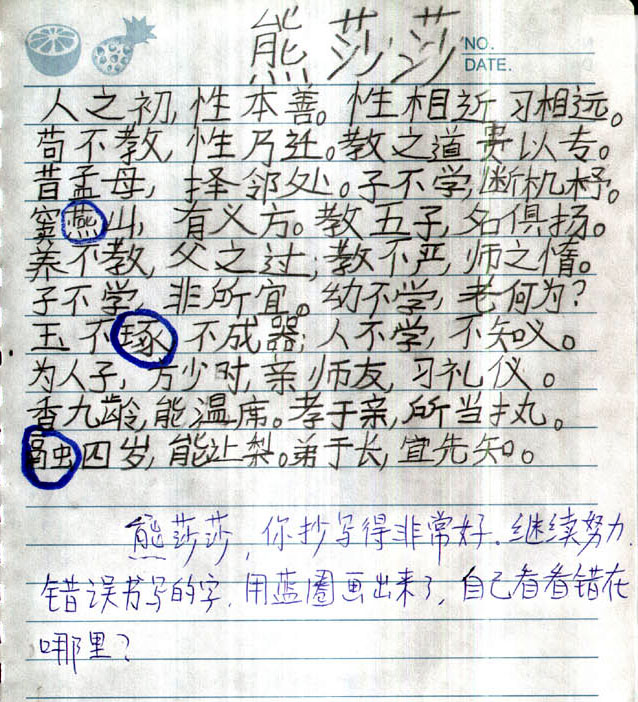 熊莎莎
NO.
DATE.
人之初,性本善。性相近习相远。
苟不教,性乃迁。教之道贵以专。
昔孟母,择邻处。子不学,断机杼。
窦燕山,有义方。教五子,名俱扬。
养不教,父之过;教不严,师之惰。
子不学,非所宜。幼不学,老何为?
玉不琢,不成器;人不学,不知义。
为人子,方少时,亲师友,习礼仪。
香九龄,能温席。孝于亲,所当执。
融四岁,能让梨。弟于长,宜先知。
熊莎莎,你抄写得非常好.继续努力
错误书写的字.用蓝圈画出来了,自己看看错在
哪里?